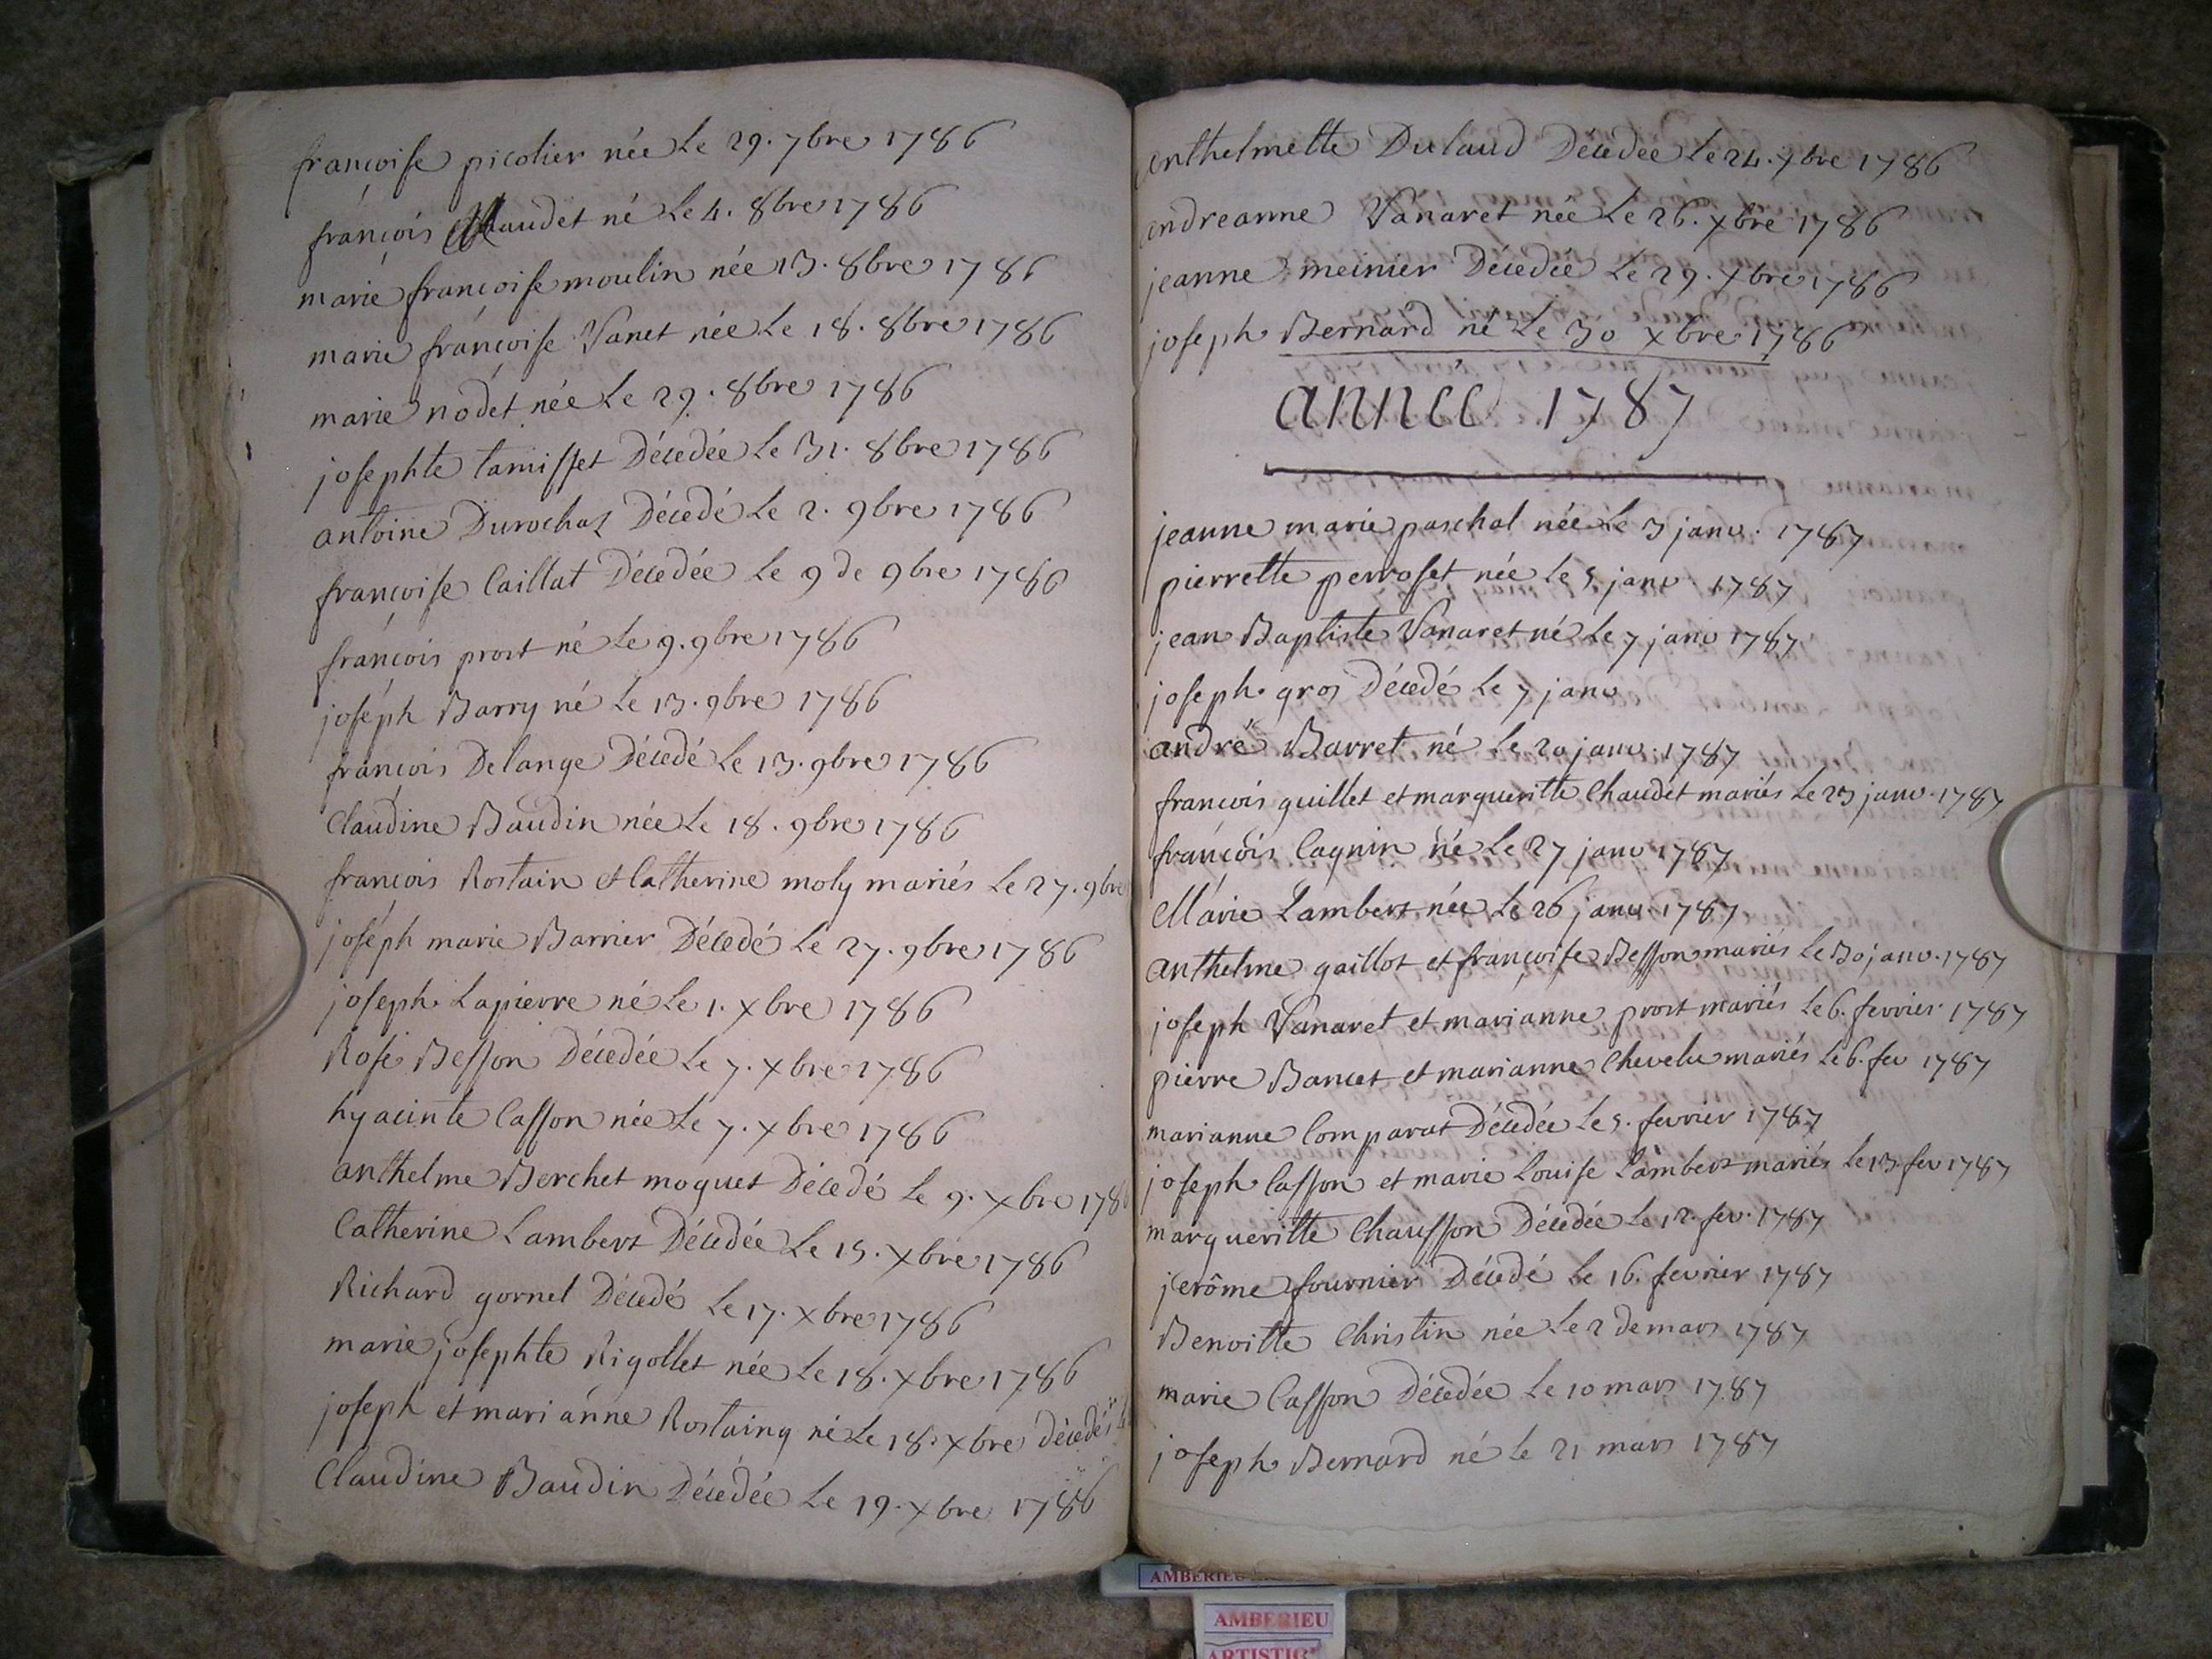 françoise picolier née Le 29. 7bre 1786
françois Chaudet né Le 4. 8bre 1786
marie françoise moulin née 13. 8bre 1786
marie françoise Vanet née Le 18. 8bre 1786
marie nodet née Le 29. 8bre 1786
josephte tamisset Décedée Le 31. 8bre 1786
antoine Durochaz Décedé Le 2. 9bre 1786
françoise Caillat Décedée Le 9 de 9bre 1786
françois prost né Le 9. 9bre 1786
joséph Barry né Le 13. 9bre 1786
françois Delange Décedé Le 13. 9bre 1786
Claudine Baudin née Le 18. 9bre 1786
françois Rostain et Catherine moly mariés Le 27. 9bre
joséph marie Barrier Décedé Le 27. 9bre 1786
joseph Lapierre né Le 1. Xbre 1786
Rose Besson Décedée Le 7. Xbre 1786
hyacinte Casson née Le 7. Xbre 1786
anthelme Berchet moquet Décedé Le 9. Xbre 178
Catherine Lambert Décedée Le 15. Xbre 1786
Richard gornet Décedé Le 17. Xbre 1786
marie josephte Rigollet née Le 18. Xbre 1786
joseph et marianne Rostaing né Le 18. Xbre décedés
Claudine Baudin Décédée Le 19. Xbre 1786
anthelmette Dulaud Décedée Le 24. Xbre 1786
andreanne Vanaret née Le 26. Xbre 1786
jeanne meinier Décedée Le 29. Xbre 1786
joseph Bernard né Le 30 Xbre 1786
année 1787
jeanne marie paschal née Le 3 janv. 1787
pierrette perroset née Le 5 janv 1787
jean Baptiste Vanaret né Le 7 janv 1787
joseph gros Décedé Le 7 janv
andré Barret né Le 20 janv. 1787
françois guillet et margueritte Chaudet mariés Le 23 janv. 1787
françois Cagnin né Le 27 janv 1787
Marie Lambert née Le 26 janv. 1787
anthelme gaillot et françoise Besson mariés Le 30 janv. 1787
joseph Vanaret et marianne prost mariés Le 6. fevrier 1787
pierre Bancet et marianne Chevelu mariés Le 6. fev 1787
marianne Comparat Décedée Le 5. fevrier 1787
joseph Casson et marie Louise Lambert mariés Le 13. fev 1787
margueritte Chausson Décedée Le 12. fev. 1787
jerôme fournier Décedé Le 16. fevrier 1787
Benoitte Christin née Le 2 de mars 1787
marie Casson Décedée Le 10 mars 1787
joseph Bernard né Le 21 mars 1787
AMBERIEU
AMBERIEU